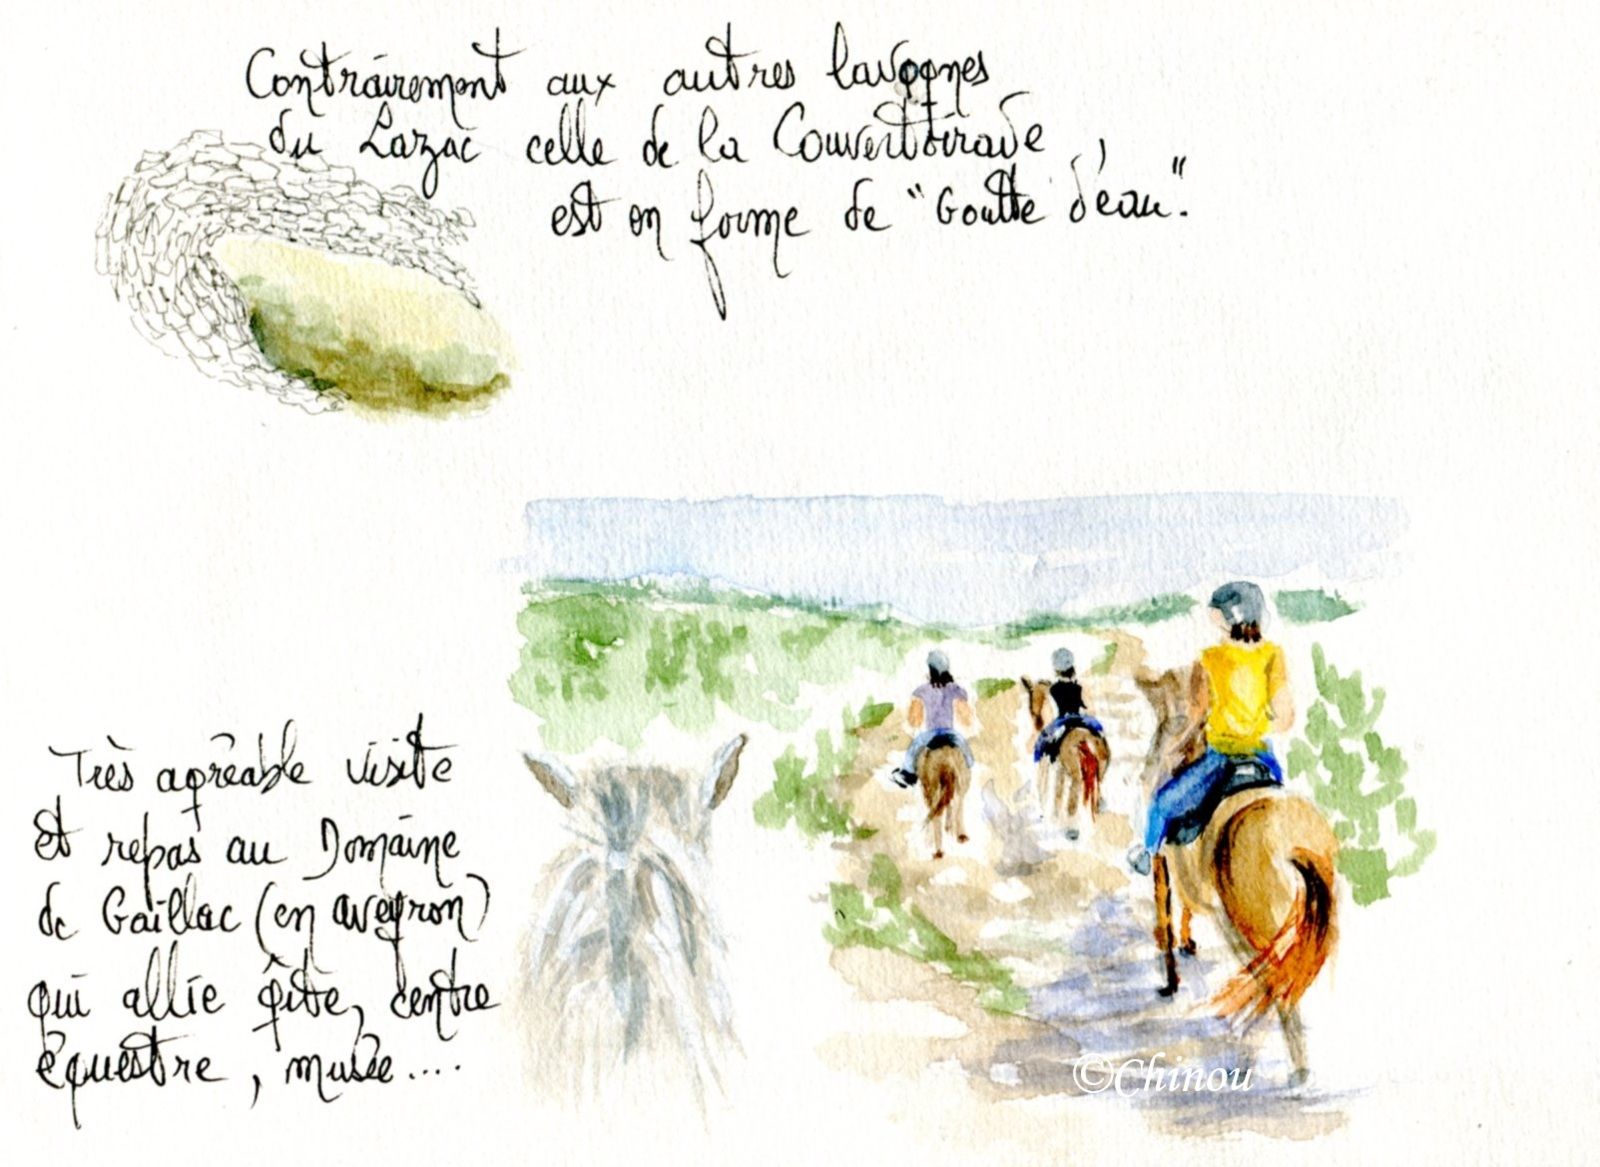 Contrairement aux autres lavognes
du Larzac celle de la Couvertoirade,
est en forme de "Goutte d'eau".
Très agréable visite
et repas au Domaine
de Gaillac (en aveyron)
qui allie gîte, centre
équestre, musée....
©Chinou